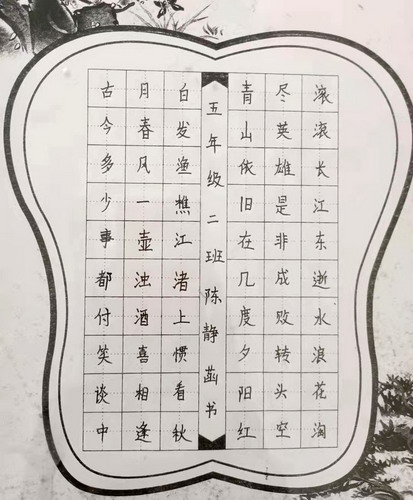 滚滚长江东逝水浪花淘
尽英雄是非成败转头空
青山依旧在几度夕阳红
五年级二班陈静菡书
白发渔樵江渚上惯看秋
月春风一壶浊酒喜相逢
古今多少事都付笑谈中